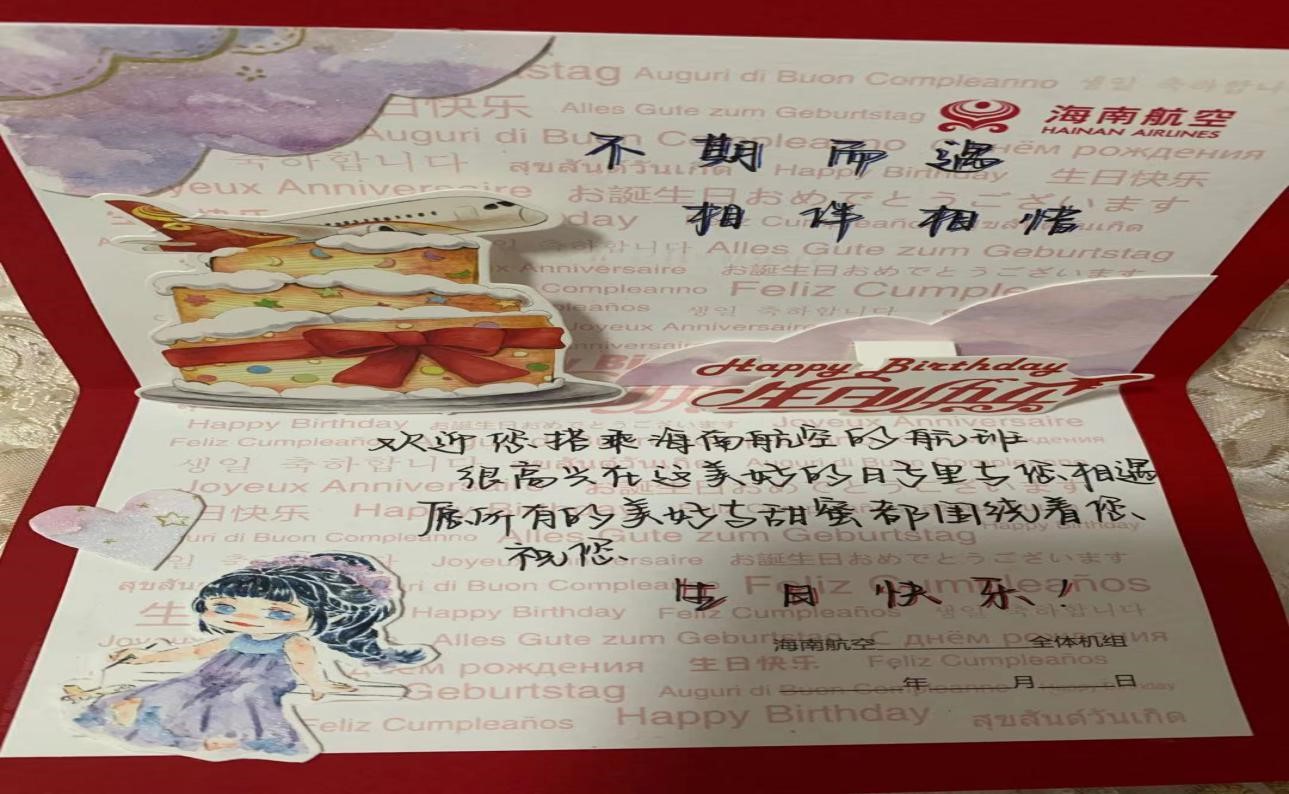 stag Auguri di Buon Compleanno 생일 축하합니
日快乐 Alles Gute zum Geburtstag
海南航空
HAINAN AIRLINES
Auguri di Buon Compleanno С днём рождения
不期而遇
축하합니다 สุขสันต์วันเกิด Happy Birthday 生日快乐
Joyeux Anniversaire お誕生日おめでとうございます
相伴相惜
축하합니다 Alles Gute zum Geburtstag
Anniversaire お誕生日おめでとうございます
Compleanno Feliz Cumple
생일 축하합니다
Joyeux Anniversaire
Happy Birthday
生日快乐
Happy Birthday Joyeux Anniversaire
欢迎您搭乘海南航空的航班
Feliz Cumpleaños
생일 축하합니다
很高兴在这美好的日子里与您相遇
Joyeux Anniversaire
日快乐 Happy
愿所有的美好与甜蜜都围绕着您、
uri di Buon Compleanno Alles Gute zum Geburtstag
祝您、
Joyeux Anniversaire お誕生日おめでとうございます
สุขสันต์วัน Auguri di Buon Compleanno Feliz Cumpleaños
生日快乐！
生 Happy Birthday Feliz Cumpleaños 생일 축하합니다
Alles Gute zum Geburtstag С днём рождения
海南航空 全体机组
рождения 生日快乐 Feliz Cumpleaños
年 月 日
Geburtstag Auguri di Buon Compleanno Happy Birthday
Feliz Cumpleaños Happy Birthday สุขสันต์วันเกิด